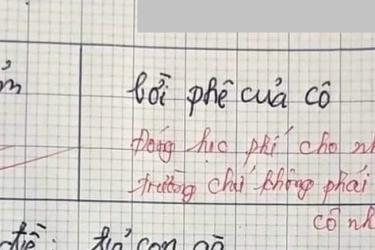 m
Lời phê của cô
Đóng học phí cho nh
trường chứ không phải
cô nh
tiền: từ con gà